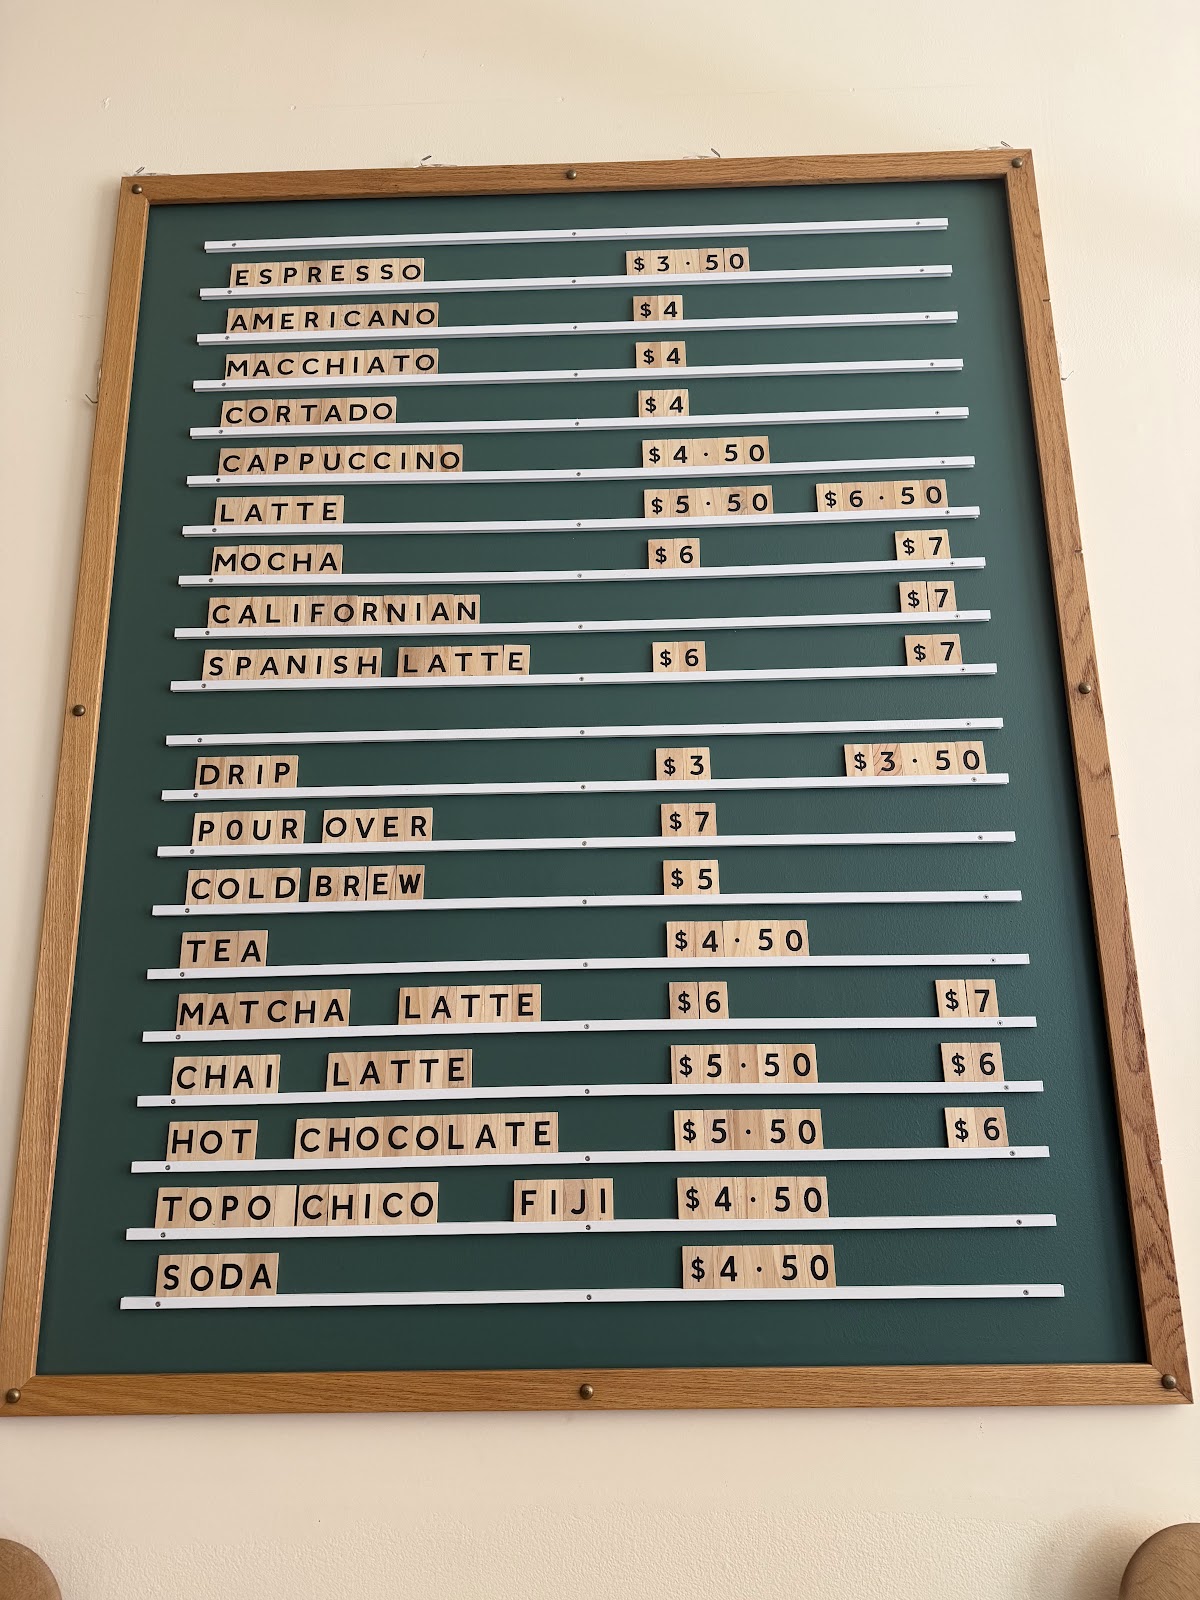 ESPRESSO $3·50
AMERICANO $4
MACCHIATO $4
CORTADO $4
CAPPUCCINO $4·50
LATTE $5·50 $6·50
MOCHA $6 $7
CALIFORNIAN $7
SPANISH LATTE $6 $7
DRIP $3 $3·50
POUR OVER $7
COLD BREW $5
TEA $4·50
MATCHA LATTE $6 $7
CHAI LATTE $5·50 $6
HOT CHOCOLATE $5·50 $6
TOPO CHICO FIJI $4·50
SODA $4·50